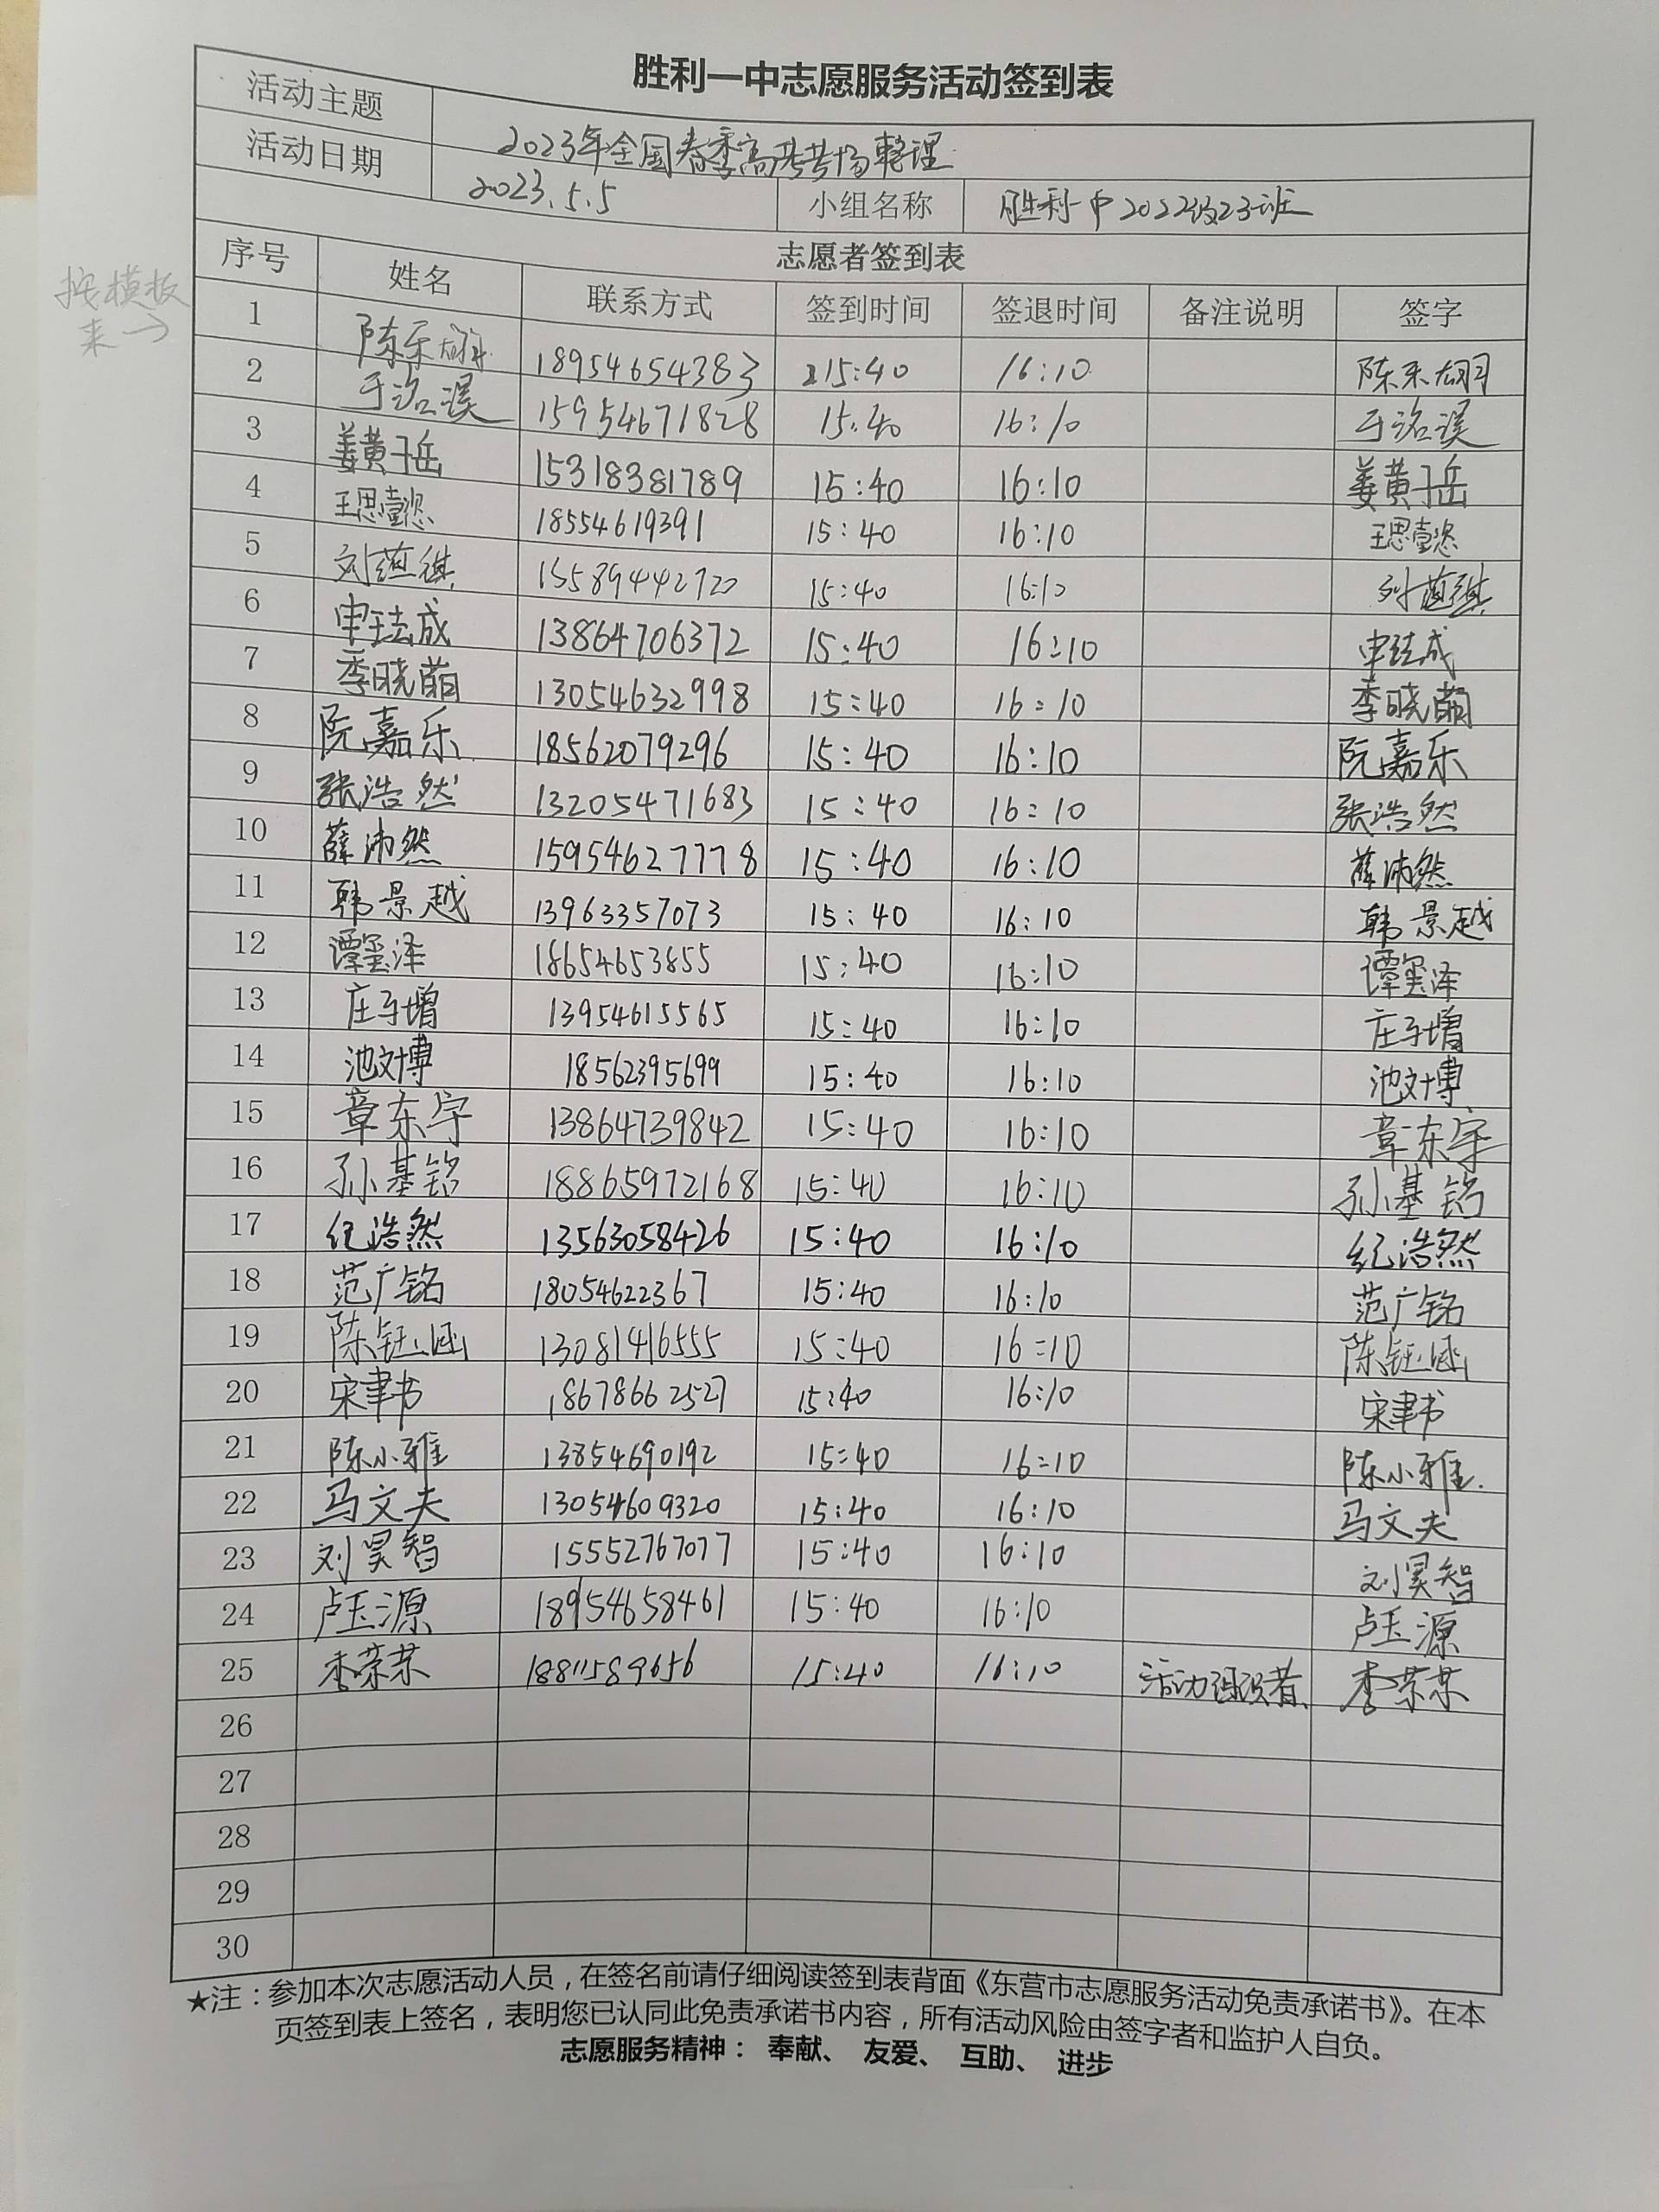 胜利一中志愿服务活动签到表
活动主题 2023年全国春季高考考场整理
活动日期 2023.5.5 小组名称 胜利一中2022级23班
志愿者签到表
序号 姓名 联系方式 签到时间 签退时间 备注说明 签字
按模板
来→
1 18954654383 15:40 16:10
2 于洺溪 15954671828 15:40 16:10 于洺溪
3 姜黄子岳 15318381789 15:40 16:10 姜黄子岳
4 王思懿 18554619391 15:40 16:10 王思懿
5 15589442720 15:40 16:10
6 申珐成 13864706372 15:40 16:10 申珐成
7 季晓萌 13054632998 15:40 16:10 季晓萌
8 阮嘉乐 18562079296 15:40 16:10 阮嘉乐
9 张浩然 13205471683 15:40 16:10 张浩然
10 薛沛然 15954627778 15:40 16:10 薛沛然
11 韩景越 13963357073 15:40 16:10 韩景越
12 谭玺泽 18654653855 15:40 16:10 谭玺泽
13 庄子增 13954615565 15:40 16:10 庄子增
14 池文博 18562395699 15:40 16:10 池文博
15 章东宇 13864739842 15:40 16:10 章东宇
16 孙基铭 18865972168 15:40 16:10 孙基铭
17 纪浩然 13563058426 15:40 16:10 纪浩然
18 范广铭 18054622367 15:40 16:10 范广铭
19 陈钰涵 13081416555 15:40 16:10 陈钰涵
20 宋聿书 18678662527 15:40 16:10 宋聿书
21 陈小雅 13854690192 15:40 16:10 陈小雅.
22 马文夫 13054609320 15:40 16:10 马文夫
23 刘昊智 15552767077 15:40 16:10 刘昊智
24 卢玉源 18954658461 15:40 16:10 卢玉源
25 李荣荣 18811589656 15:40 16:10 活动组织者 李荣荣
26
27
28
29
30
★注：参加本次志愿活动人员，在签名前请仔细阅读签到表背面《东营市志愿服务活动免责承诺书》。在本
页签到表上签名，表明您已认同此免责承诺书内容，所有活动风险由签字者和监护人自负。
志愿服务精神： 奉献、 友爱、 互助、 进步